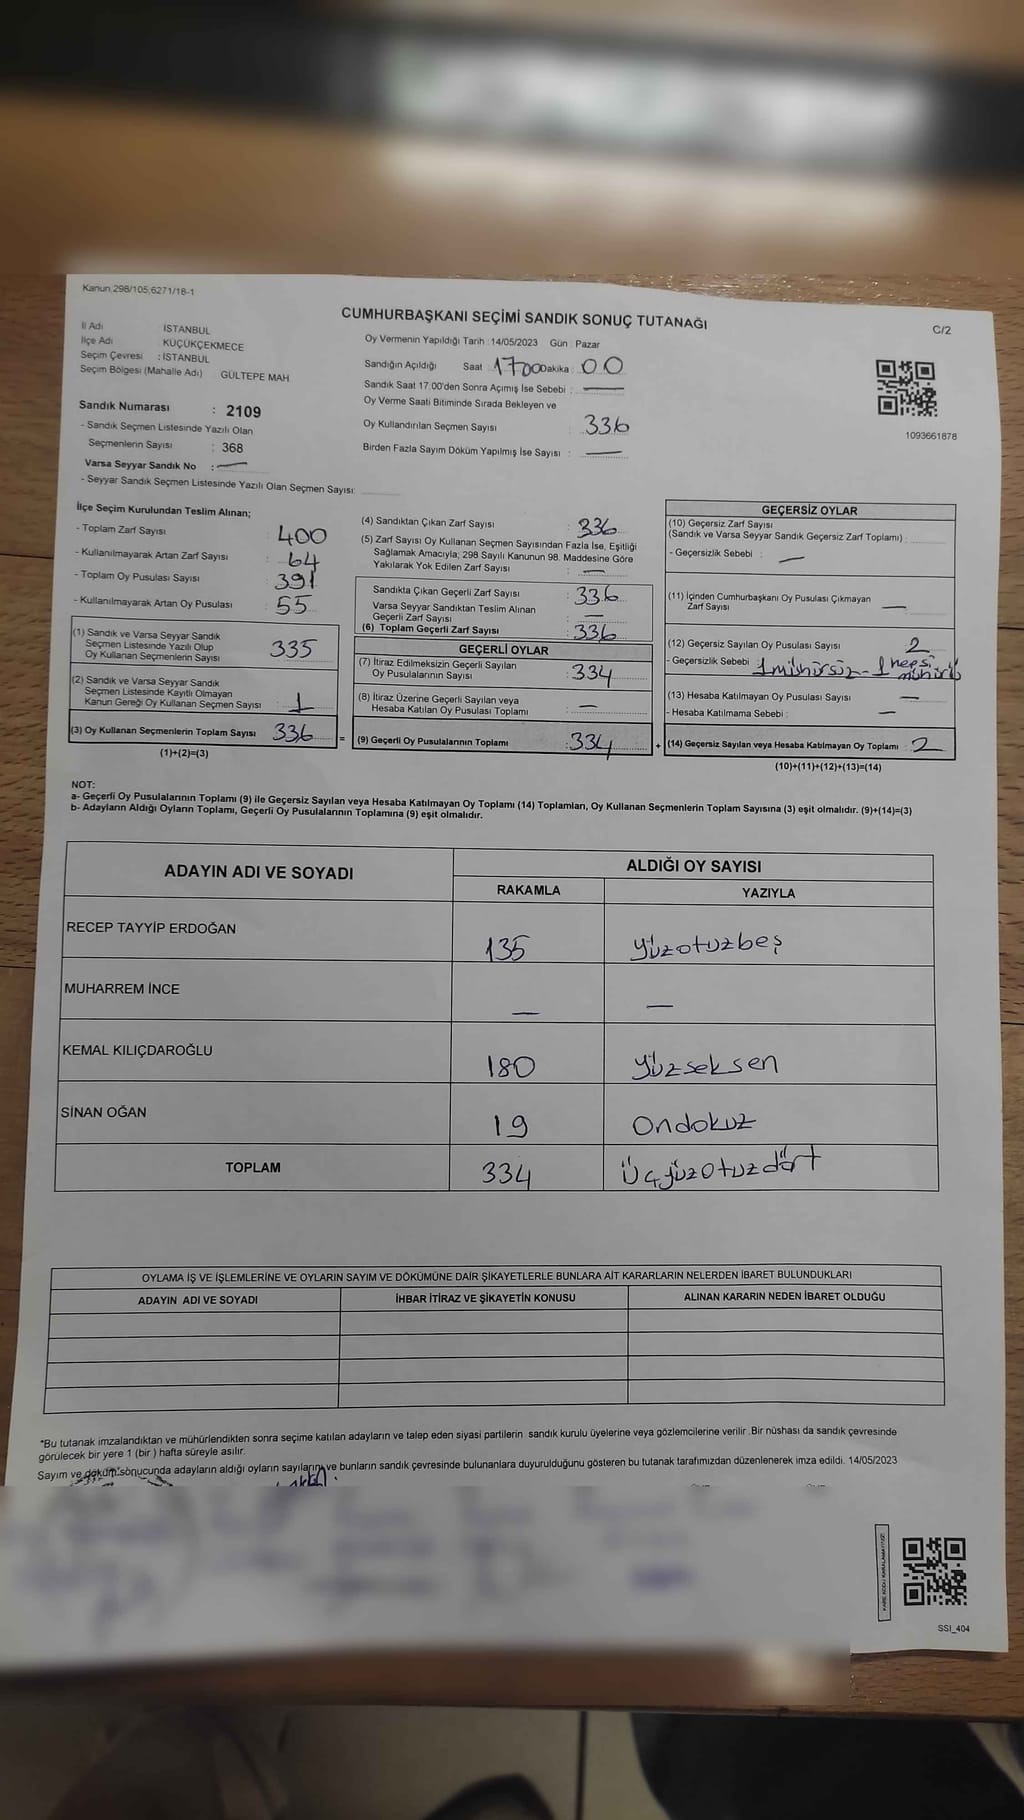 Kanun:298/105,6271/18-1
CUMHURBAŞKANI SEÇİMİ SANDIK SONUÇ TUTANAĞI
C/2
İl Adı İSTANBUL
İlçe Adı KÜÇÜKÇEKMECE
Seçim Çevresi : İSTANBUL
Seçim Bölgesi (Mahalle Adı) GÜLTEPE MAH
Sandık Numarası : 2109
- Sandık Seçmen Listesinde Yazılı Olan
Seçmenlerin Sayısı : 368
Varsa Seyyar Sandık No : —
- Seyyar Sandık Seçmen Listesinde Yazılı Olan Seçmen Sayısı:
Oy Vermenin Yapıldığı Tarih :14/05/2023 Gün : Pazar
Sandığın Açıldığı Saat 1700 Dakika : 00
Sandık Saat 17.00'den Sonra Açımış İse Sebebi : —
Oy Verme Saati Bitiminde Sırada Bekleyen ve
Oy Kullandırılan Seçmen Sayısı : 336
Birden Fazla Sayım Döküm Yapılmış İse Sayısı : —
1093661878
İlçe Seçim Kurulundan Teslim Alınan;
- Toplam Zarf Sayısı : 400
- Kullanılmayarak Artan Zarf Sayısı : 64
- Toplam Oy Pusulası Sayısı : 391
- Kullanılmayarak Artan Oy Pusulası : 55
(1) Sandık ve Varsa Seyyar Sandık
Seçmen Listesinde Yazılı Olup
Oy Kullanan Seçmenlerin Sayısı : 335
(2) Sandık ve Varsa Seyyar Sandık
Seçmen Listesinde Kayıtlı Olmayan
Kanun Gereği Oy Kullanan Seçmen Sayısı : 1
(3) Oy Kullanan Seçmenlerin Toplam Sayısı : 336
(1)+(2)=(3)
=
(4) Sandıktan Çıkan Zarf Sayısı : 336
(5) Zarf Sayısı Oy Kullanan Seçmen Sayısından Fazla İse, Eşitliği
Sağlamak Amacıyla; 298 Sayılı Kanunun 98. Maddesine Göre
Yakılarak Yok Edilen Zarf Sayısı : —
Sandıkta Çıkan Geçerli Zarf Sayısı : 336
Varsa Seyyar Sandıktan Teslim Alınan
Geçerli Zarf Sayısı : —
(6) Toplam Geçerli Zarf Sayısı : 336
GEÇERLİ OYLAR
(7) İtiraz Edilmeksizin Geçerli Sayılan
Oy Pusulalarının Sayısı : 334
(8) İtiraz Üzerine Geçerli Sayılan veya
Hesaba Katılan Oy Pusulası Toplamı : —
(9) Geçerli Oy Pusulalarının Toplamı : 334
+
GEÇERSİZ OYLAR
(10) Geçersiz Zarf Sayısı
(Sandık ve Varsa Seyyar Sandık Geçersiz Zarf Toplamı) :
- Geçersizlik Sebebi : —
(11) İçinden Cumhurbaşkanı Oy Pusulası Çıkmayan
Zarf Sayısı : —
(12) Geçersiz Sayılan Oy Pusulası Sayısı : 2
- Geçersizlik Sebebi 1 mühürsüz - 1 hepsi
mühürlü
(13) Hesaba Katılmayan Oy Pusulası Sayısı : —
- Hesaba Katılmama Sebebi : —
(14) Geçersiz Sayılan veya Hesaba Katılmayan Oy Toplamı : 2
(10)+(11)+(12)+(13)=(14)
NOT:
a- Geçerli Oy Pusulalarının Toplamı (9) ile Geçersiz Sayılan veya Hesaba Katılmayan Oy Toplamı (14) Toplamları, Oy Kullanan Seçmenlerin Toplam Sayısına (3) eşit olmalıdır. (9)+(14)=(3)
b- Adayların Aldığı Oyların Toplamı, Geçerli Oy Pusulalarının Toplamına (9) eşit olmalıdır.
ADAYIN ADI VE SOYADI ALDIĞI OY SAYISI
RAKAMLA YAZIYLA
RECEP TAYYİP ERDOĞAN 135 yüzotuzbeş
MUHARREM İNCE — —
KEMAL KILIÇDAROĞLU 180 yüzseksen
SİNAN OĞAN 19 Ondokuz
TOPLAM 334 Üçyüzotuzdört
OYLAMA İŞ VE İŞLEMLERİNE VE OYLARIN SAYIM VE DÖKÜMÜNE DAİR ŞİKAYETLERLE BUNLARA AİT KARARLARIN NELERDEN İBARET BULUNDUKLARI
ADAYIN ADI VE SOYADI İHBAR İTİRAZ VE ŞİKAYETİN KONUSU ALINAN KARARIN NEDEN İBARET OLDUĞU
*Bu tutanak imzalandıktan ve mühürlendikten sonra seçime katılan adayların ve talep eden siyasi partilerin sandık kurulu üyelerine veya gözlemcilerine verilir .Bir nüshası da sandık çevresinde
görülecek bir yere 1 (bir ) hafta süreyle asılır.
Sayım ve döküm sonucunda adayların aldığı oyların sayılarını ve bunların sandık çevresinde bulunanlara duyurulduğunu gösteren bu tutanak tarafımızdan düzenlenerek imza edildi. 14/05/2023
KARE KODU KARALAMAYINIZ!
SSI_404